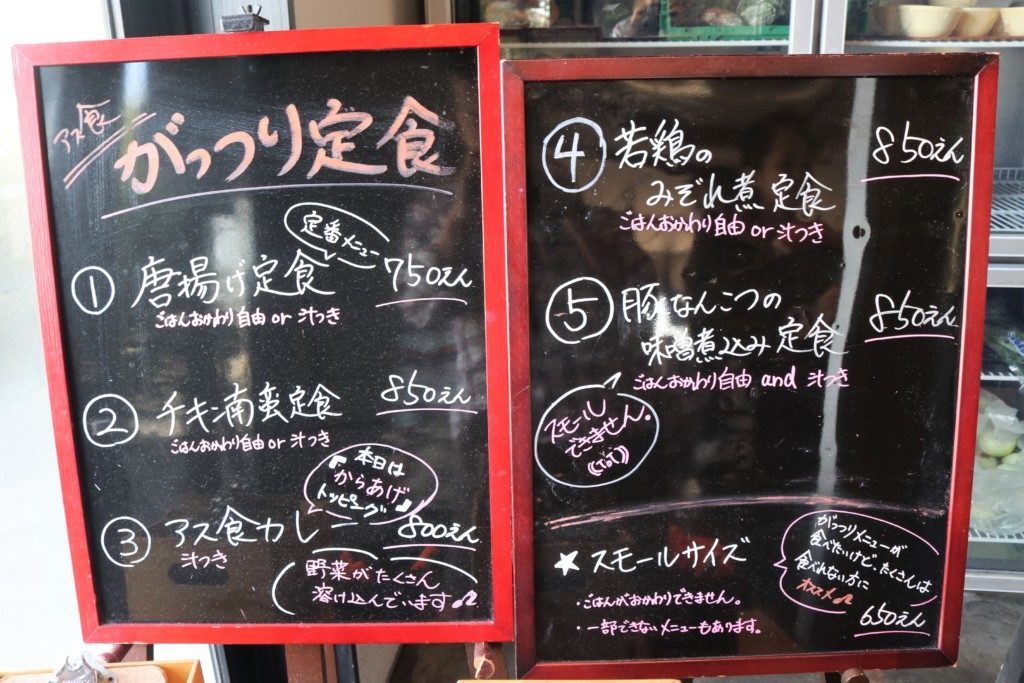 アス食
がっつり定食
定番メニュー
① 唐揚げ定食 750えん
ごはんおかわり自由 or 汁つき
② チキン南蛮定食 850えん
ごはんおかわり自由 or 汁つき
本日は
『からあげ
トッピング』
③ アス食カレー 800えん
汁つき
野菜がたくさん
溶け込んでいます♫
④ 若鶏の 850えん
みぞれ煮定食
ごはんおかわり自由 or 汁つき
⑤ 豚なんこつの 850えん
味噌煮込み定食
ごはんおかわり自由 and 汁つき
スモール
できません。
((ToT))
★スモールサイズ
・ごはんがおかわりできません。
・一部できないメニューもあります。
がっつりメニューが
食べたいけど、たくさんは
食べれない方に
オススメ♫
650えん